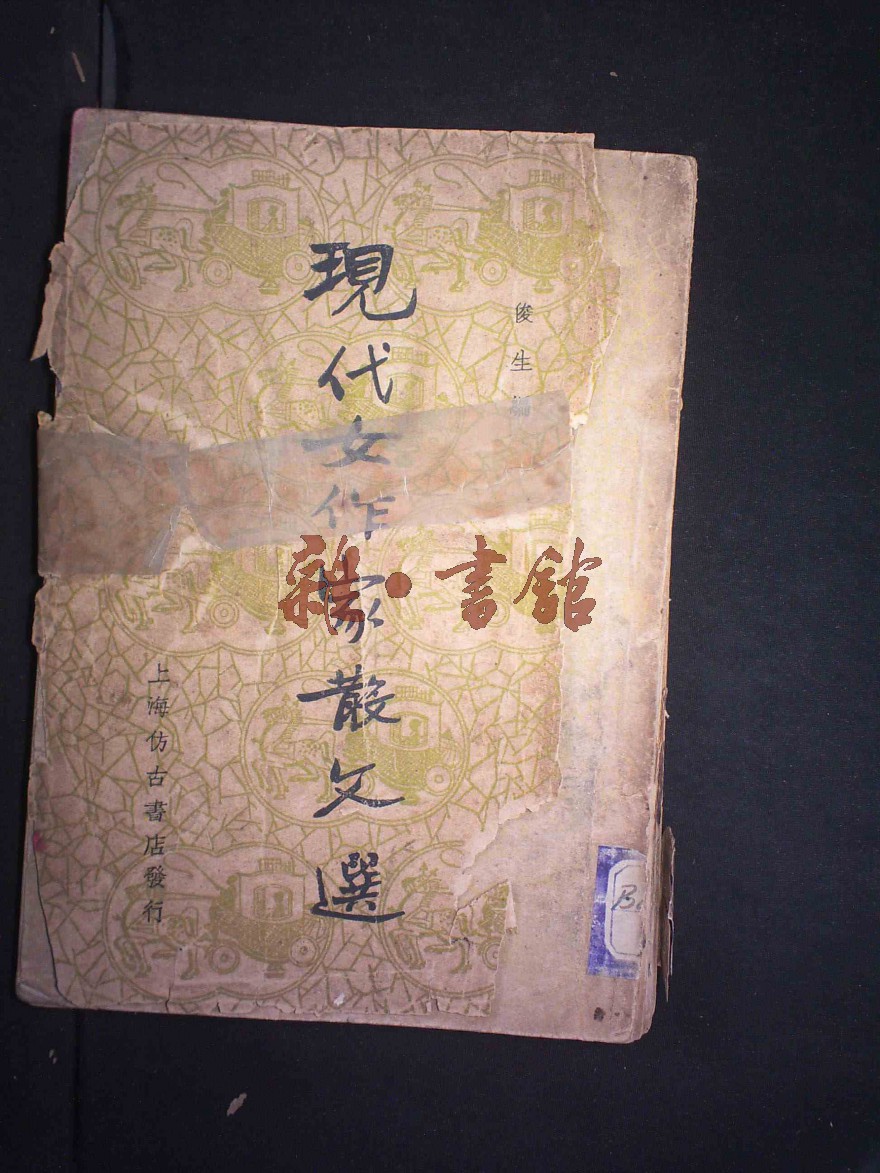 俊生編
現代女作家散文選
上海仿古書店發行
雜·書館
B